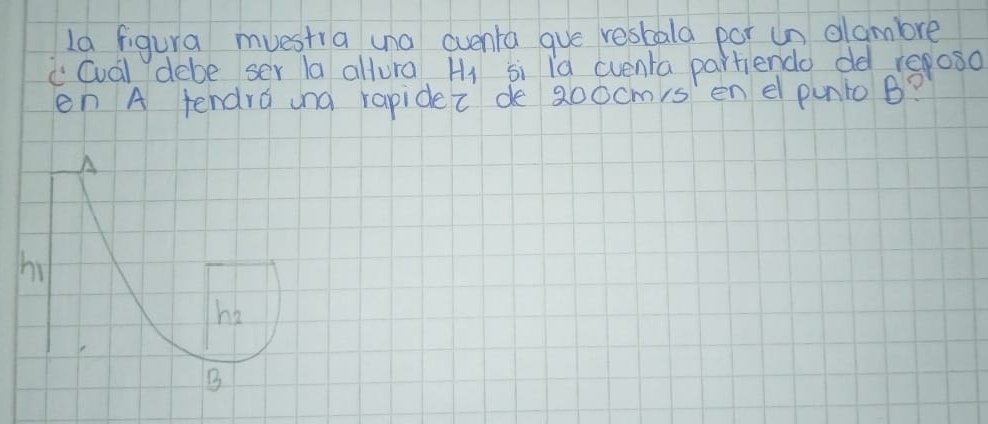 la figura muestra una cuenta que resbala por un alambre
¿Cuál debe ser la altura H1 si la cuenta partiendo del reposo
en A tendrá una rapidez de 200cm/s en el punto B?
A
h1
h2
B